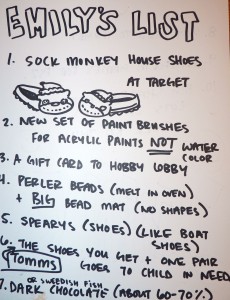 EMILY'S LIST
1. SOCK MONKEY HOUSE SHOES
AT TARGET
2. NEW SET OF PAINT BRUSHES
FOR ACRYLIC PAINTS NOT WATER
COLOR
3. A GIFT CARD TO HOBBY LOBBY
4. PERLER BEADS (MELT IN OVEN)
+ BIG BEAD MAT (NO SHAPES)
5. SPEARYS (SHOES) (LIKE BOAT
SHOES)
6. THE SHOES YOU GET + ONE PAIR
TOMMS GOES TO CHILD IN NEED
OR SWEDISH FISH
7. DARK CHOCOLATE (ABOUT 60-70%)